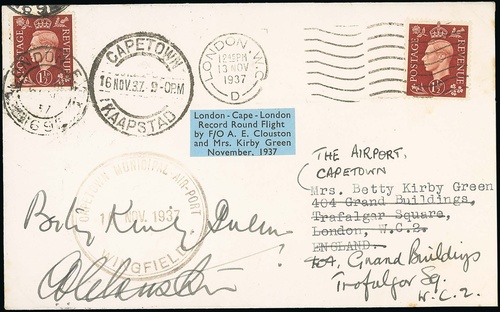 POSTAGE REVENUE
1½D
CAPETOWN
16 NOV. 37. 9-0PM
KAAPSTAD
LONDON, W.C.
12 15PM
13 NOV
1937
D
POSTAGE REVENUE
1½D
London - Cape - London
Record Round Flight
by F/O A. E. Clouston
and Mrs. Kirby Green
November, 1937
THE AIRPORT,
CAPETOWN
Mrs. Betty Kirby Green
404 Grand Buildings,
Trafalgar Square,
London, W.C.2.
ENGLAND.
Grand Buildings
Trafalgar Sq.
W.C.2.
CAPETOWN MUNICIPAL AIR-PORT
NOV. 1937
WINGFIELD
Betty Kirby Green
AEClouston